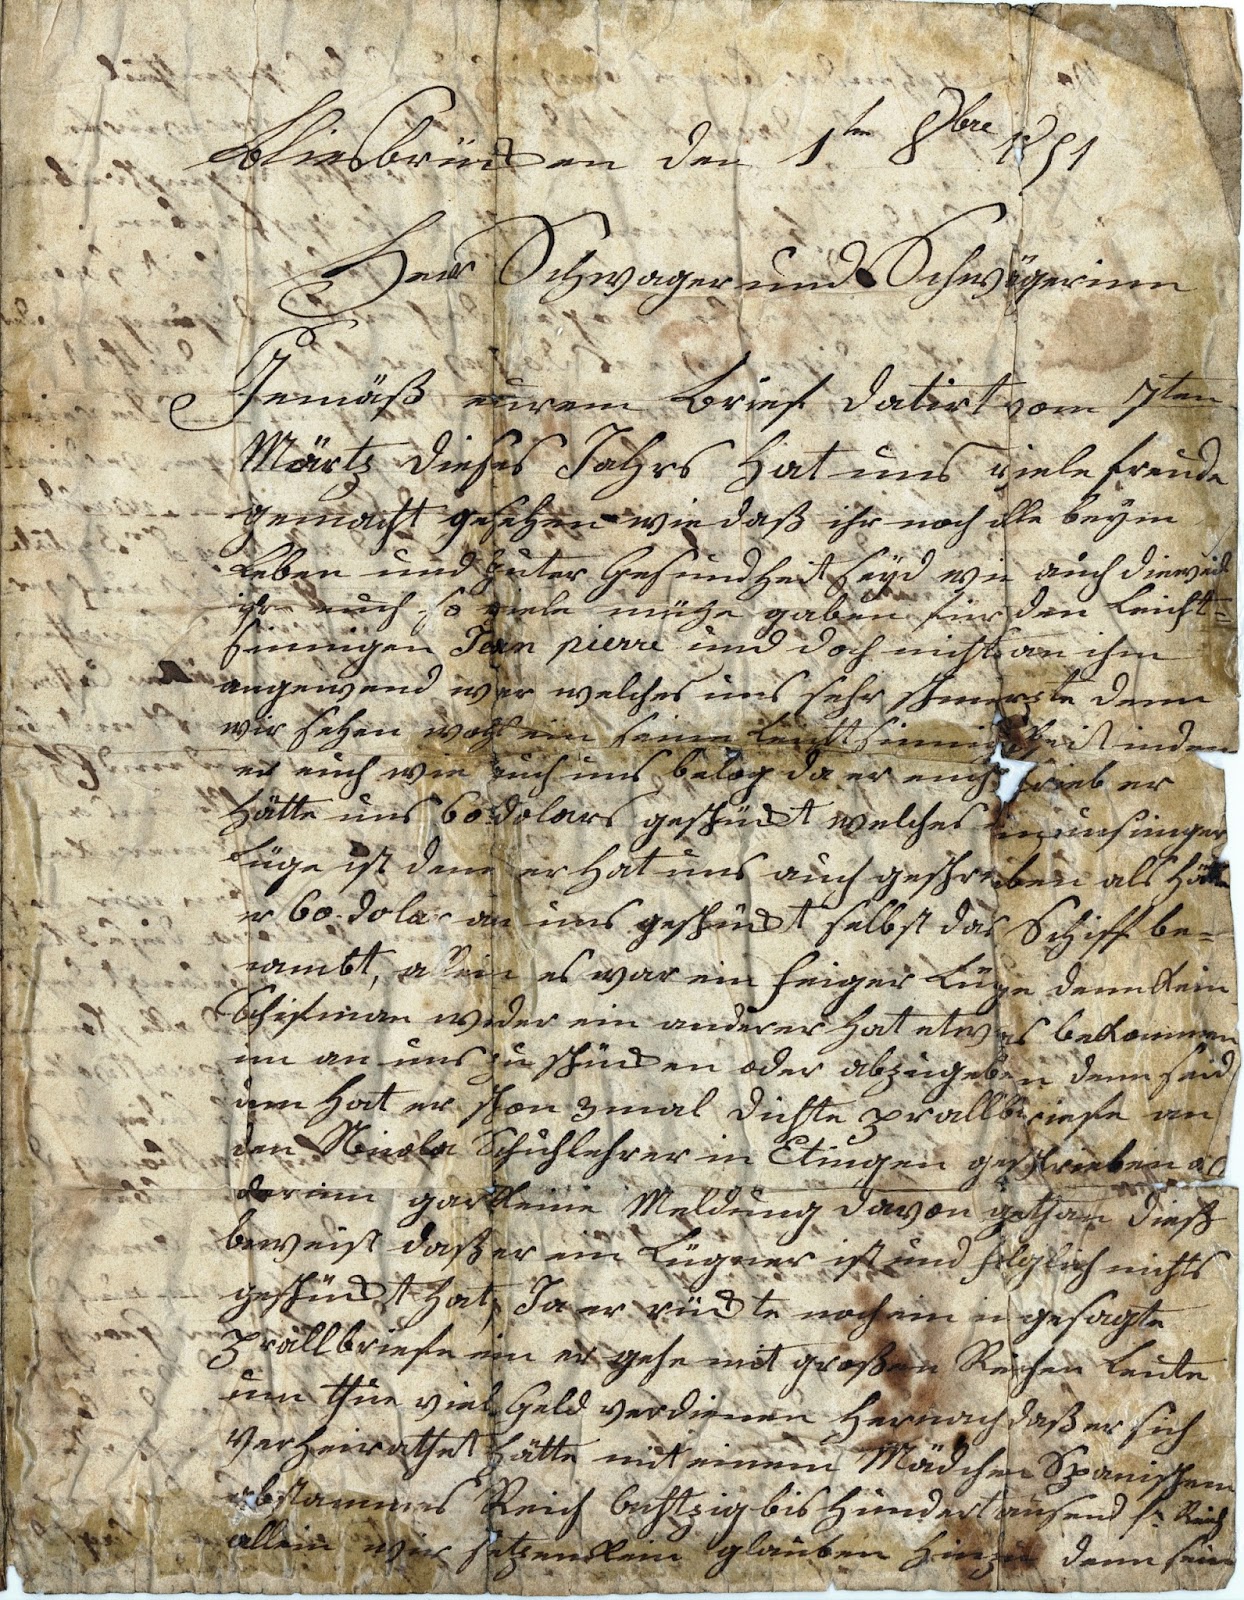 Bliesbrücken den 1ten 8bre 1851
Herr Schwager und Schwägerinn
Gemäß eurem Brief datirt vom 7ten
Märtz dieses Jahrs hat uns viele freude
gemacht gesehen wie daß ihr noch alle beym
Leben und guter Gesundheit seyd wie auch dieweil
ihr euch so viele mühe gaben für den Leicht=
sinnigen Jean pierre und doch nichts an ihm
angewend war welches uns sehr schmerzte denn
wir sehen wohl ein seine Leichtsinnigkeit indem
er euch wie auch uns belog da er euch schrieb er
hätte uns 60 dolars geschückt welches ein unsinger
Lüge ist denn er hat uns auch geschrieben als hätte
er 60. dolar an uns geschückt selbst das Schiff be=
rambt, allein es war ein feiger Lüge denn kein
Schifman weder ein anderer hat etwas bekommen
um an uns zu schücken oder abzugeben denn seid
dem hat er schon 3mal dichte prallbriefe an
den Nicola Schuhlehrer in Etingen geschrieben
darinn gar keine Meldung davon gethan dieß
beweist daß er ein Lügner ist und folglich nichts
geschückt hat, Ja er rückte noch ein in gesagte
prallbriefe ein er gehe mit großen Reichen Leute
um thue viel Geld verdienen hernach daß er sich
verheirathet hätte mit einem Mädchen Spanischem
abstammes Reich achtzig bis hundert tausend fr. Reich
allein wir setzen kein glauben hinzu denn sein